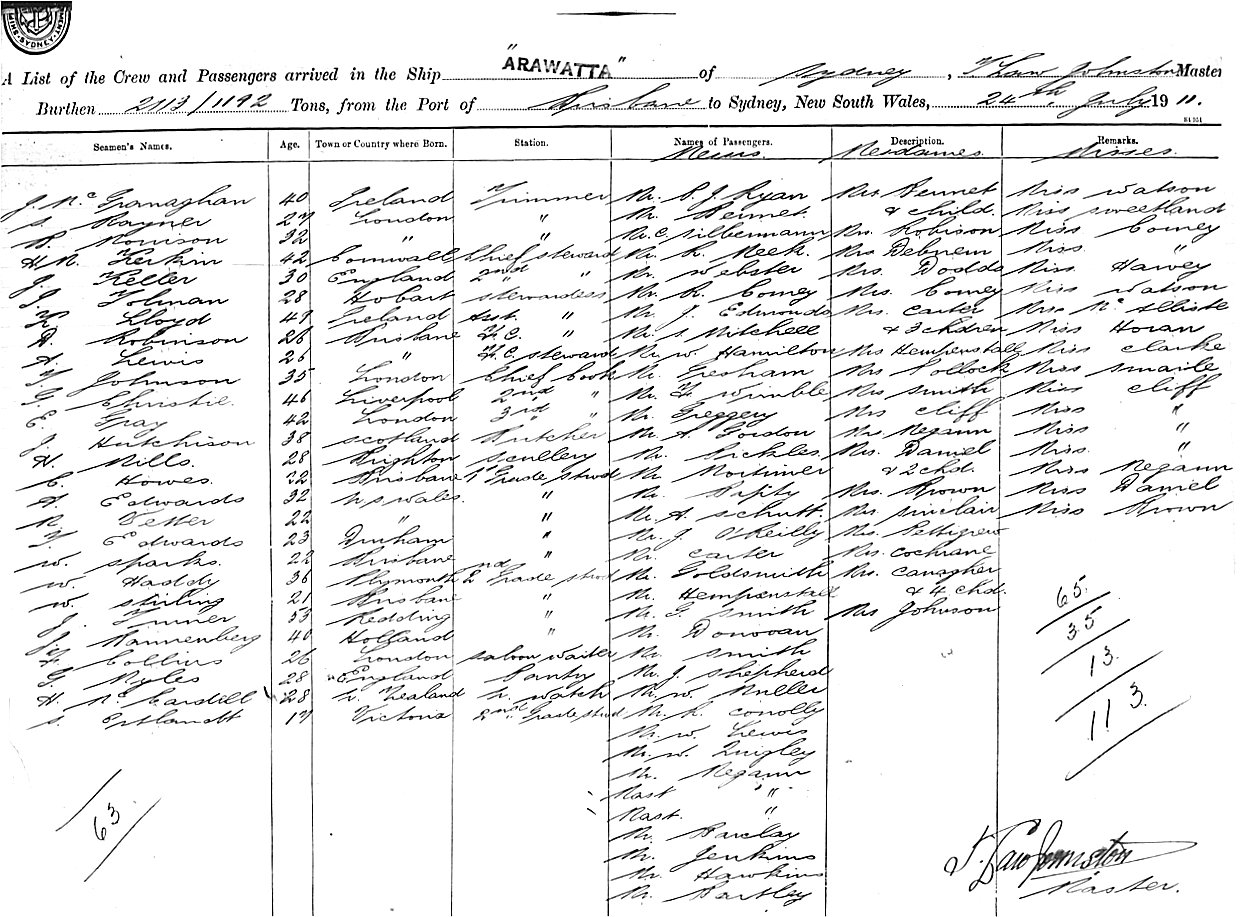 SHIPPING MASTER'S OFFICE SYDNEY
"ARAWATTA"
A List of the Crew and Passengers arrived in the Ship "ARAWATTA" of Sydney, T Law Johnston Master
Burthen 2113/1192 Tons, from the Port of Brisbane to Sydney, New South Wales, 24th July 1911.
Seamen's Names. Age. Town or Country where Born. Station. Names of Passengers. Description. Remarks.
Messrs. Mesdames. Misses.
J. McGranaghan 40 Ireland Trimmer Mr. P. J. Ryan Mrs Bennet Miss Watson
S. Rayner 27 London " Mr. Bennet & child. Miss Sweetland
R. Morrison 32 " " Mr. C. Silbermann Mrs. Robison Miss Comey
H. N. Kerkin 42 Cornwall Chief Steward Mr. R. Meek. Mrs Debnem Miss "
J. Keller 30 England 2nd " Mr. Webster Mrs. Dodds Miss Harvey
J. Tolman 28 Hobart Stewardess Mr. R. Comey Mrs. Comey Miss Watson
K. Lloyd 47 Ireland Asst. " Mr. J. Edmonds Mrs. Carter Miss McAlliste
A. Robinson 26 Brisbane F. C. " Mr. S. Mitchell & 3 chdren Miss Horan
A. Lewis 26 " F. C. Steward Mr. W. Hamilton Mrs Hempenstall Miss Clarke
T. Johnson 35 London Chief Cook Mr. Gresham Mrs Pollock Miss Smaile
G. Christie. 46 Liverpool 2nd " Mr. F. Wimble Mrs Smith Miss Cliff
E. Gray 42 London 3rd " Mr. Greggery Mrs Cliff Miss "
J. Hutchison 38 Scotland Butcher Mr. A. Gordon Mrs Megann Miss "
H. Mills. 28 Brighton Scullery Mr. Pickles. Mrs. Daniel Miss. "
C. Howes. 22 Brisbane 1st Grade Stwd Mr Mortimer & 2 chd. Miss Megann
A. Edwards 32 N S Wales. " Mr. Mrs. Brown Miss Daniel
R. Vetter 22 " " Mr. A. Schutt. Mrs. Sinclair Miss Brown
T. Edwards 23 Durham " Mr. J. O'Reilly Mrs. Pettigrew
W. Sparks. 22 Brisbane " Mr. Carter Mrs. Cochrane
W. Haddy 36 Plymouth 2nd Grade Stwd Mr. Goldsmith Mrs. Canagher
W. Stirling 21 Brisbane " Mr. Hempenstall & 4 chd.
J. Turner 53 Redding " Mr. G. Smith Mrs Johnson
J. Dannenberg 40 Holland " Mr. Donovan
F. Collins 26 London Saloon Waiter Mr. Smith
G. Myles 28 England Pantry Mr. J. Shepherd
H. McCardill 28 N. Zealand N. Watch Mr. W. Muller
S. Ertlandt 17 Victoria 2nd Grade Stwd Mr. R. Conolly
Mr. W. Lewis
Mr. W. Quigley
Mr. Megann
Mast "
Mast. "
Mr. Barclay
Mr. Jenkins
Mr. Hawkins
Mr. Bartley
63
65.
35
13.
113.
T. Law Johnston
Master.